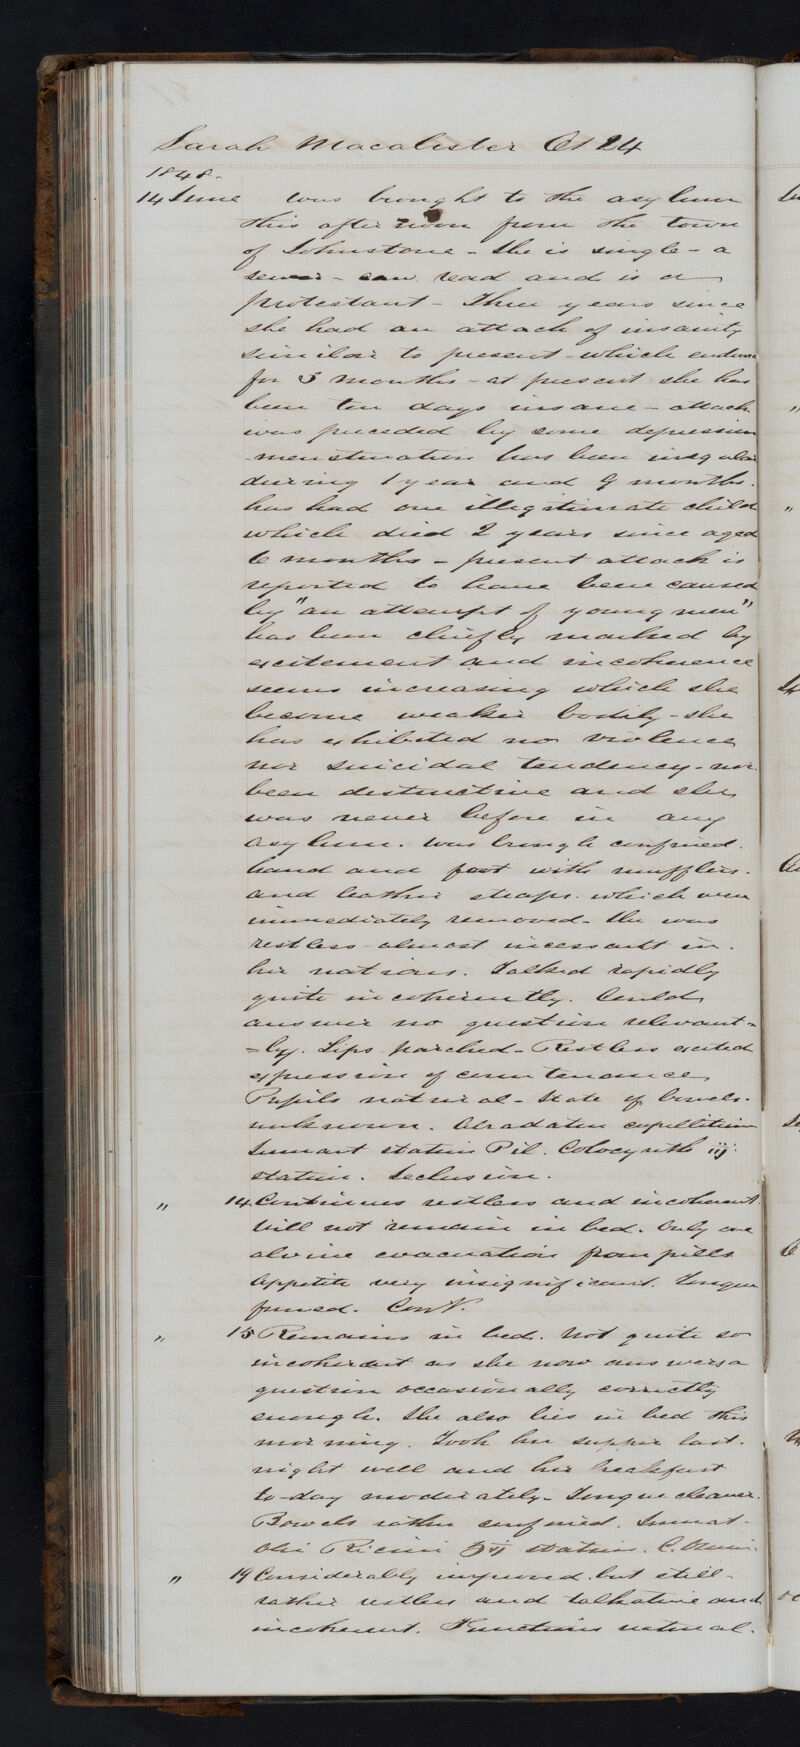 Sarah Macalister Æt 24
1848.
14 June was brought to the asylum
this afternoon from the town
of Johnstone - She is single - a
sewer - can read and is a
protestant - Three years since
she had an attack of insanity
similar to present - which endured
for 3 months - at present she has
been ten days insane - attack
was preceded by some depression
- menstruation has been irregular
during 1 year and 9 months.
has had one illegitimate child
which died 2 years since aged
6 months - present attack is
reported to have been caused
by "an attempt of young men"
has been chiefly marked by
excitement and incoherence
seems increasing which she
become weaker bodily - she
has exhibited no violence
nor suicidal tendency - nor
been destructive and she
was never before in any
asylum. was brought confined
hand and foot with mufflers
and leather straps. which were
immediately removed. She was
restless almost incessant in
her motions. Talked rapidly
quite incoherently. Could
answer no question relevant=
=ly. Lips parched - Restless excited
expression of countenance
Pupils natural - State of bowels
unknown. Abradatur capillitium
Sumant statim Pil. Colocynth iij
statim. Seclusion.
" 14 Continues restless and incoherent
Will not remain in bed. Only one
alvine evacuation from pills
Appetite very insignificant. Tongue
furred. Cont.
" 15 Remains in bed. Not quite so
incoherent as she now answers a
question occasionally correctly
enough. She also lies in bed this
morning. Took her supper last
night well and her breakfast
to-day moderately - Tongue cleaner.
Bowels rather confined. Sumat
Olei Ricini ʒvj statim.
" 19 Considerably improved. but still
rather restless and talkative and
incoherent. Functions natural.